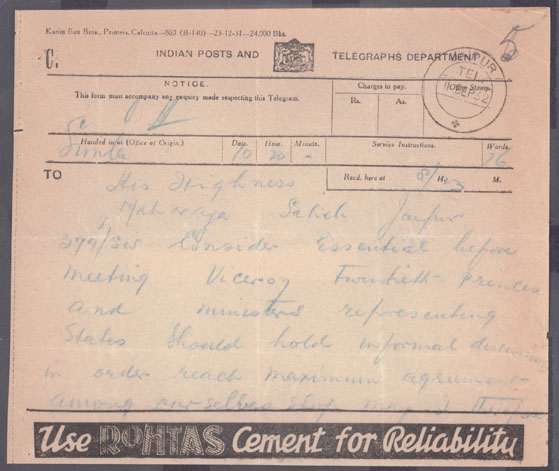 Karim Bux Bros., Printers, Calcutta—S61 (H-140)—23-12-31—24,000 Bks.
5
C.
INDIAN POSTS AND TELEGRAPHS DEPARTMENT
NOTICE.
This form must accompany any enquiry made respecting this Telegram.
Charges to pay.
Rs. As.
Handed in at (Office of Origin). Date. Hour. Minute. Service Instructions. Words.
Simla 10 20 - 76
TO
Recd. here at H. M.
His Highness
Maharaja Sahib Jaipur
379/SW Consider Essential before
Meeting Viceroy Twentieth Princes
and ministers representing
States should hold informal
in order reach maximum agreement
among ourselves Stop may I
Use ROHTAS Cement for Reliability